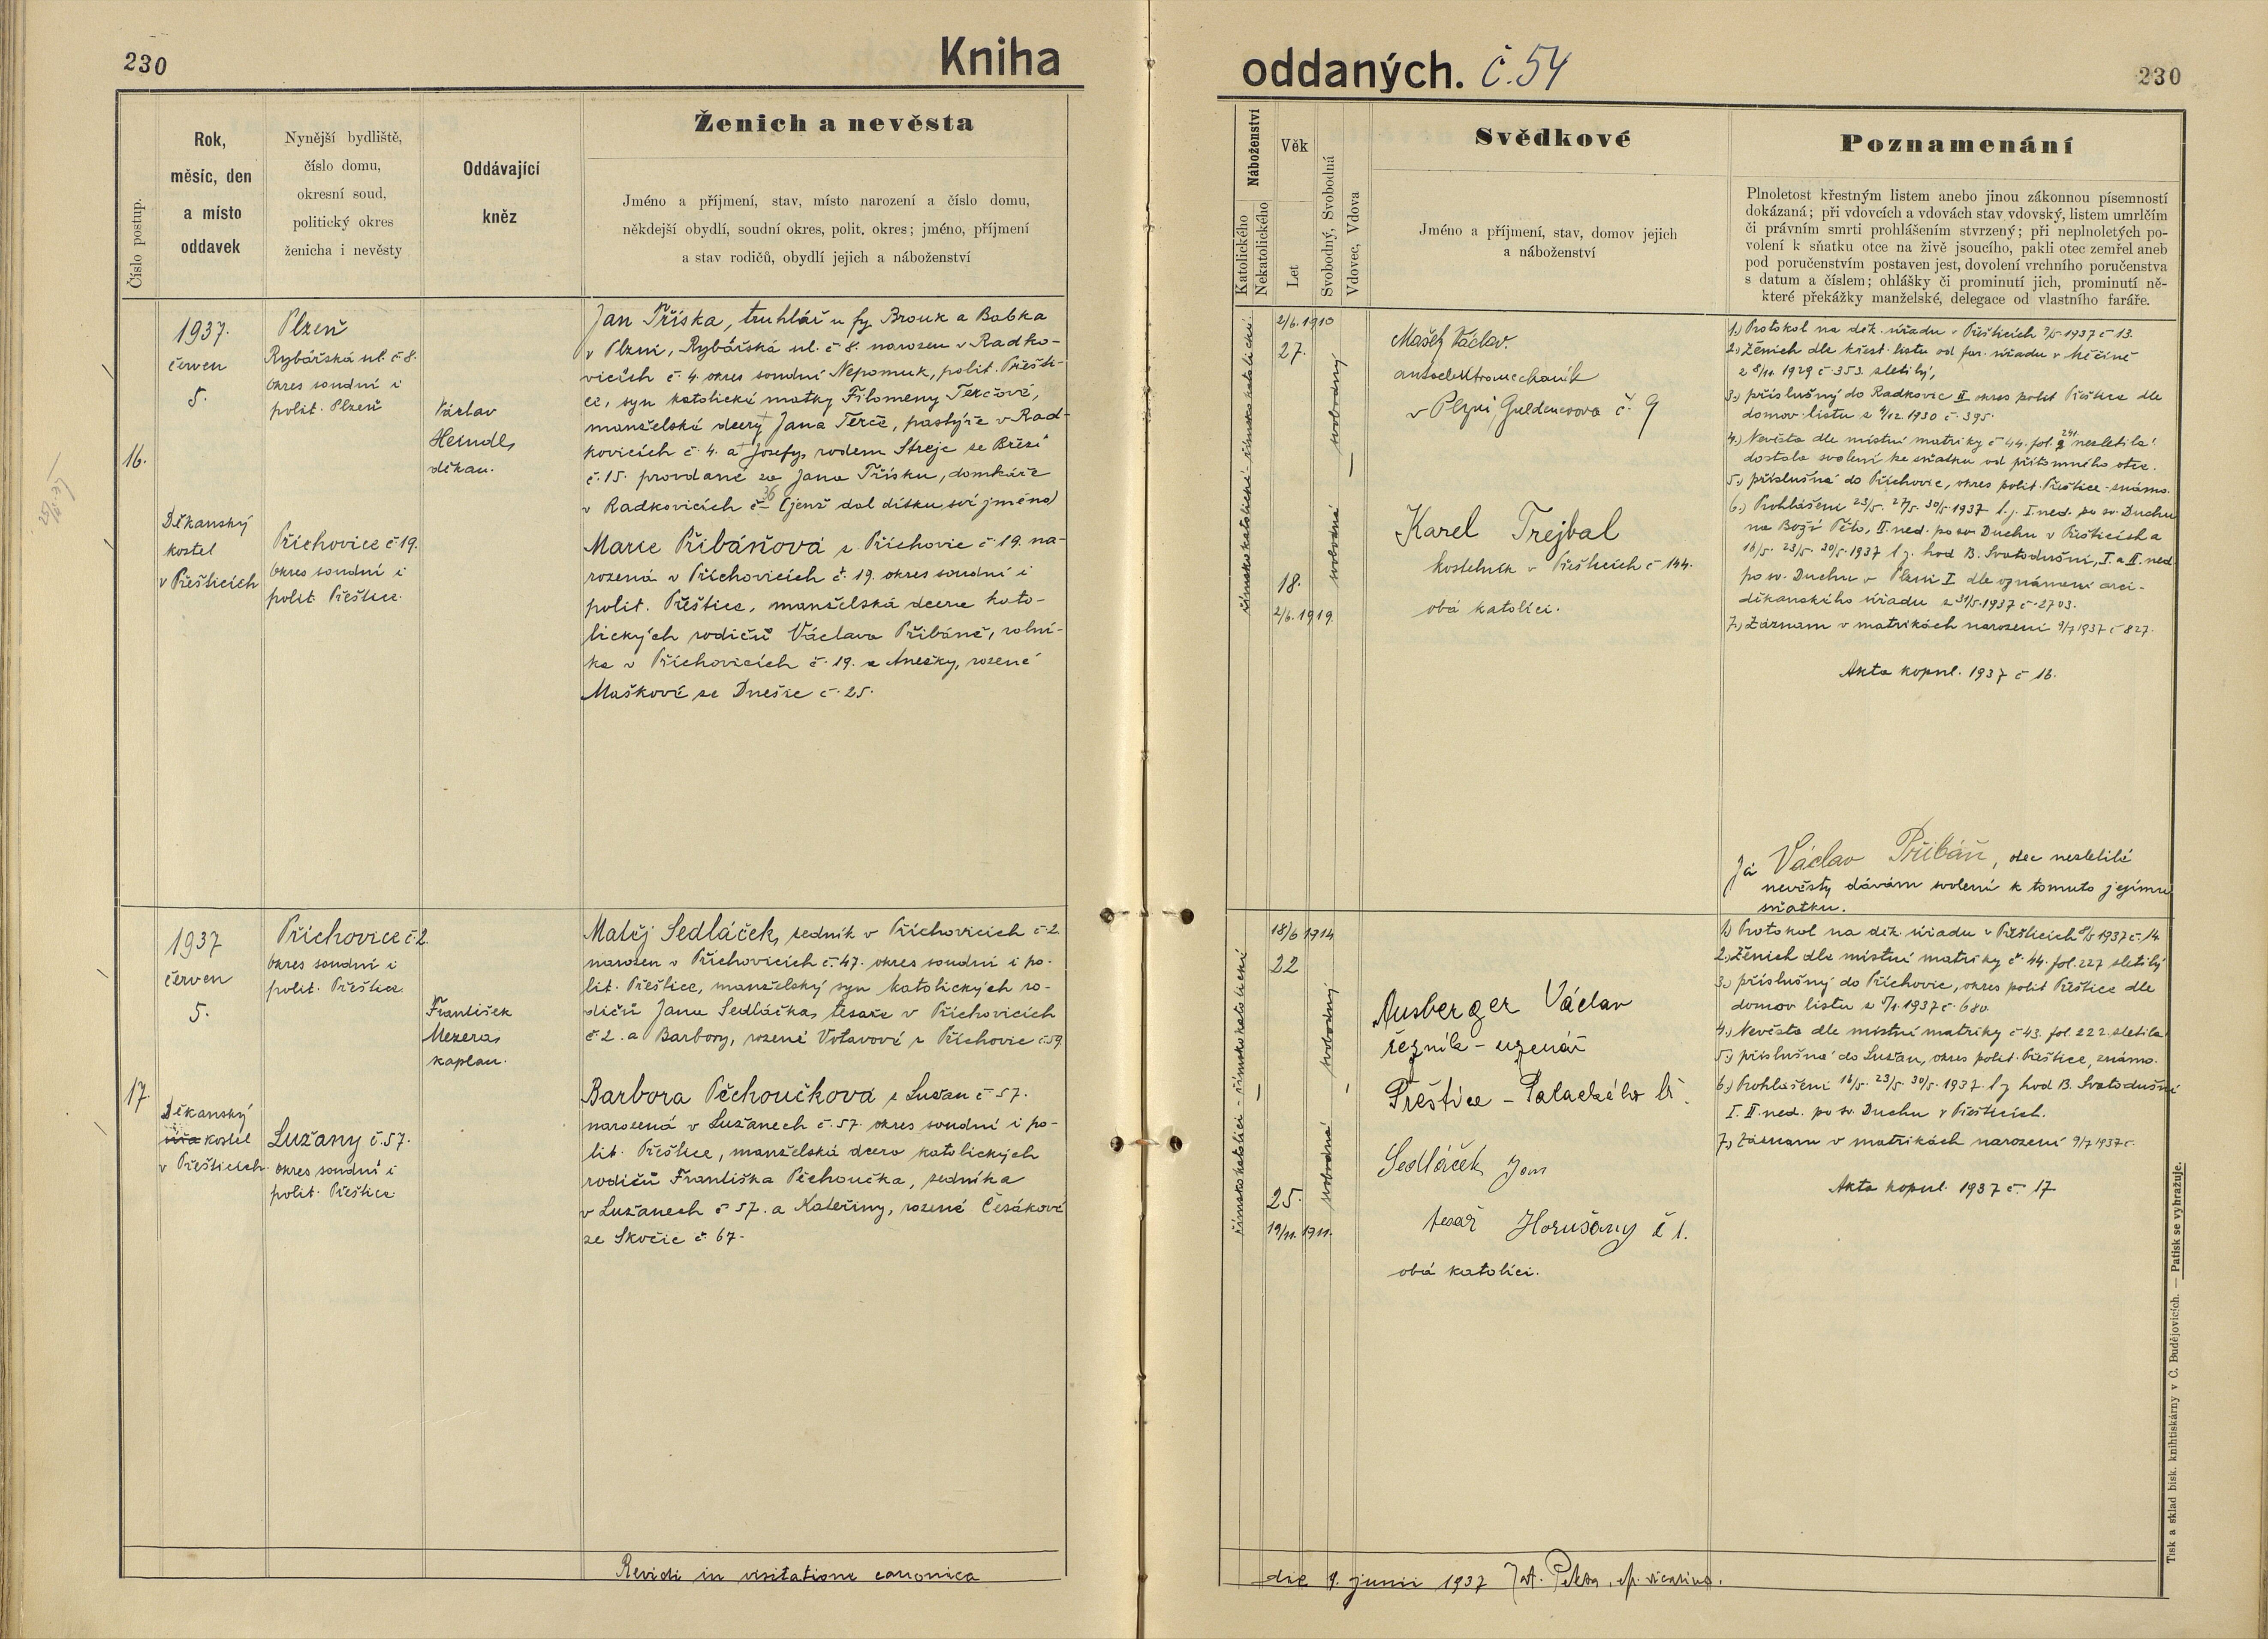 230
Kniha
Číslo postup.
Rok,
měsíc, den
a místo
oddavek
Nynější bydliště,
číslo domu,
okresní soud,
politický okres
ženicha i nevěsty
Oddávající
kněz
Ženich a nevěsta
Jméno a příjmení, stav, místo narození a číslo domu,
někdejší obydlí, soudní okres, polit. okres; jméno, příjmení
a stav rodičů, obydlí jejich a náboženství
16.
1937.
červen
5.
Děkanský
kostel
v Přešticích
Plzeň
Rybářská ul. č 8.
okres soudní i
polit. Plzeň
Příchovice č 19.
okres soudní i
polit. Přeštice.
Václav
Heindl,
děkan.
Jan Tříska, truhlář u fy Brouk a Babka
v Plzni, Rybářská ul. č 8. narozen v Radko-
vicích č. 4. okres soudní Nepomuk, polit. Přešti-
ce, syn katolické matky Filomeny Terčové,
manželské dcery Jana Terče, pastýře v Rad-
kovicích č. 4. a Josefy, rodem Strejc se Březí
č. 15. provdané za Jana Třísku, domkáře
v Radkovicích č 36 (jenž dal dítku své jméno)
Marie Přibáňová z Příchovic č 19. na-
rozená v Příchovicích č. 19. okres soudní i
polit. Přeštice, manželská dcera kato-
lických rodičů Václava Přibáně, rolní-
ka v Příchovicích č. 19. a Anežky, rozené
Maškové ze Dnešic č. 25.
17.
1937
červen
5.
Děkanský
kostel
v Přešticích
Příchovice č 2.
okres soudní i
polit. Přeštice.
Lužany č. 57.
okres soudní i
polit. Přeštice
František
Mezera,
kaplan.
Matěj Sedláček, zedník v Příchovicích č 2.
narozen v Příchovicích č. 47. okres soudní i po-
lit. Přeštice, manželský syn katolických ro-
dičů Jana Sedláčka, tesaře v Příchovicích
č 2. a Barbory, rozené Votavové z Příchovic č 59.
Barbora Pěchoučková z Lužan č 57.
narozená v Lužanech č. 57. okres soudní i po-
lit. Přeštice, manželská dcera katolických
rodičů Františka Pěchoučka, zedníka
v Lužanech č 57. a Kateřiny, rozené Česákové
ze Skočic č. 67.
Revidi in visitatione canonica
oddaných. č. 54
230
Náboženství
Katolického
Nekatolického
Věk
Let
Svobodný, Svobodná
Vdovec, Vdova
Svědkové
Jméno a příjmení, stav, domov jejich
a náboženství
Poznamenání
Plnoletost křestným listem anebo jinou zákonnou písemností
dokázaná; při vdovcích a vdovách stav vdovský, listem umrlčím
či právním smrti prohlášením stvrzený; při neplnoletých po-
volení k sňatku otce na živě jsoucího, pakli otec zemřel aneb
pod poručenstvím postaven jest, dovolení vrchního poručenstva
s datum a číslem; ohlášky či prominutí jich, prominutí ně-
které překážky manželské, delegace od vlastního faráře.
římskokatolická - římskokatolické
2/6. 1910
27.
svobodný
svobodná
18.
2/6. 1919.
Mašek Václav.
autoelektromechanik
v Plzni Guldenerova č. 9
Karel Trejbal
kostelník v Přešticích č 144.
oba katolíci.
1.) Protokol na děk. úřadu v Přešticích 7/5 1937 č 13.
2.) Ženich dle křest. listu od far. úřadu v Měčíně
z 8/11. 1929 č 353. zletilý,
3.) příslušný do Radkovic II. okres polit Přeštice dle
domov. listu z 9/12. 1930 č. 395.
4.) Nevěsta dle místní matriky č 44. fol. 241. nezletilá
dostala svolení ke sňatku od přítomného otce.
5.) příslušná do Příchovic, okres polit. Přeštice - známo.
6.) Prohlášení 23/5. 27/5. 30/5 1937 t. j. I. ned. po sv. Duchu
na Boží Tělo, II. ned. po sv. Duchu v Přešticích a
16/5. 23/5. 30/5. 1937 t. j. hod B. Svatodušní, I. a II. ned.
po sv. Duchu v Plzni I. dle oznámení arci-
děkanského úřadu z 31/5. 1937 č. 2703.
7.) Záznam v matrikách narození 9/7 1937 č 827.
Akta kopul. 1937 č 16.
Já Václav Přibáň, otec nezletilé
nevěsty dávám svolení k tomuto jejímu
sňatku.
římskokatolíci - římskokatolické
18/6 1914
22
svobodný
svobodná
25.
19/11. 1911.
Ausberger Václav
řezník - uzenář
Přeštice - Palackého tř.
Sedláček Jan
tesař Horušany č 1.
oba katolíci.
1.) Protokol na děk. úřadu v Přešticích 8/5 1937 č. 14.
2.) Ženich dle místní matriky č. 44. fol. 227 zletilý
3.) příslušný do Příchovic, okres polit Přeštice dle
domov listu z 5/1. 1937 č. 680.
4.) Nevěsta dle místní matriky č 43. fol. 222. zletilá
5.) příslušná do Lužan, okres polit. Přeštice, známo.
6.) Prohlášení 16/5. 23/5. 30/5. 1937. t. j. hod B. Svatodušní
I. II. ned. po sv. Duchu v Přešticích.
7.) Záznam v matrikách narození 9/7 1937 č.
Akta kopul. 1937 č. 17.
die 9. junii 1937
Tisk a sklad bisk. knihtiskárny v Č. Budějovicích. — Patisk se vyhražuje.